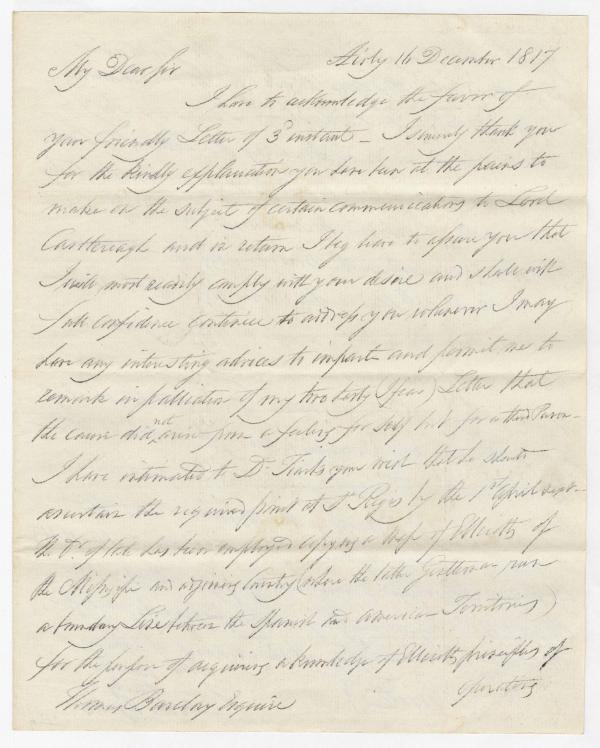 Airly 16 December 1817
My Dear Sir
I have to acknowledge the favor of
your friendly Letter of 3d instant _ I sincerely thank you
for the kindly explanation you have been at the pains to
make on the subject of certain communications to Lord
Castlereagh and in return I beg leave to assure you that
I will most readily comply with your desire and shall with
full confidence continue to address you whenever I may
have any interesting advices to impart and permit me to
remark in palliation of my two hasty (I fear) Letter that
the cause did not arise from a feeling for self but for a third Person _
I have intimated to Dr Tiarks your wish that he should
ascertain the required point at St Regis by the 1st April next _
the Dr. of late has been employed copying a Map of Ellicotts of
the Missisippi and adjoining Country (where the latter Gentleman run
a boundary Line between the Spanish and American Territories)
for the purpose of acquiring a knowledge of Ellicotts principles of
operating
Thomas Barclay Esquire